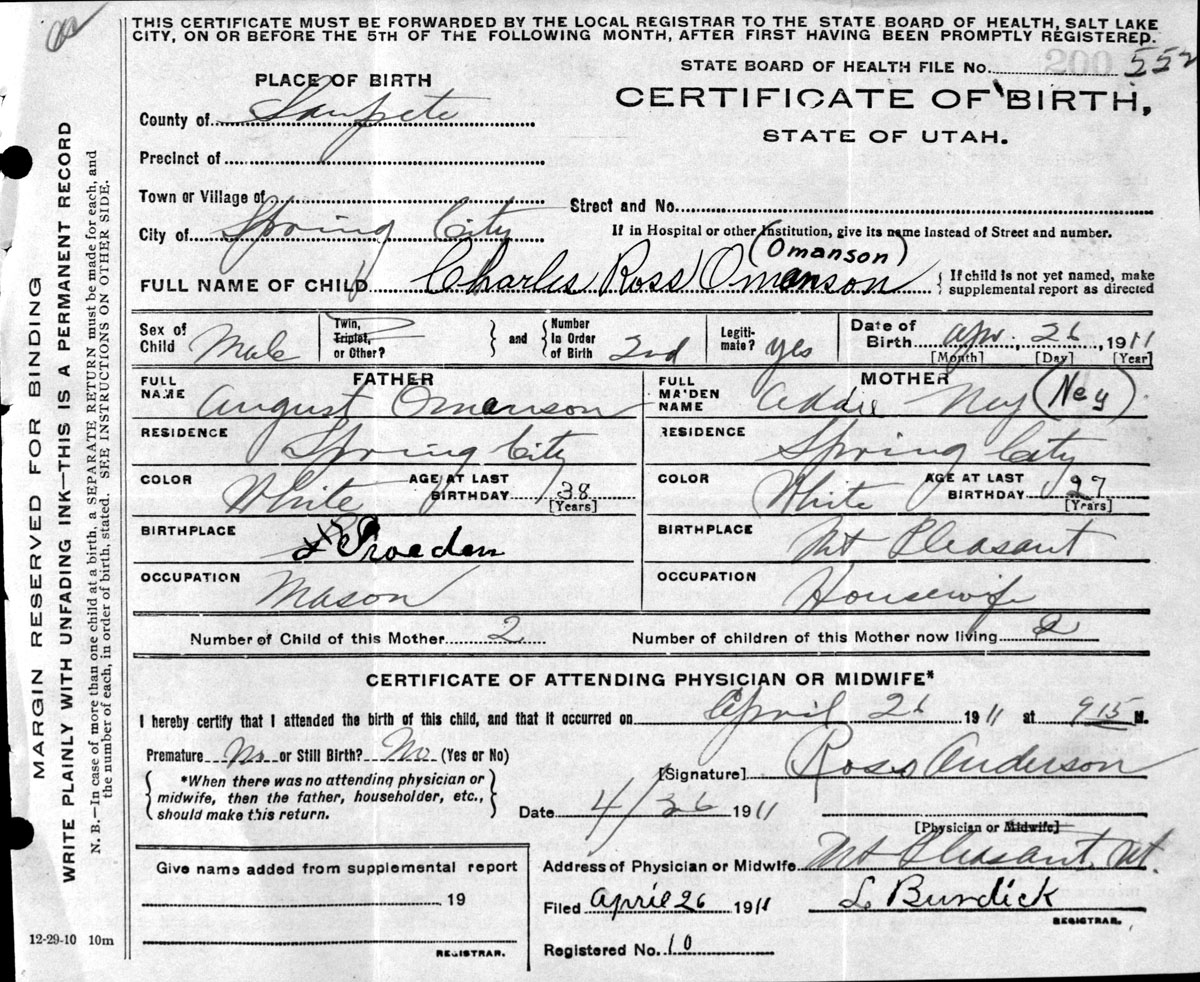 THIS CERTIFICATE MUST BE FORWARDED BY THE LOCAL REGISTRAR TO THE STATE BOARD OF HEALTH, SALT LAKE
CITY, ON OR BEFORE THE 5TH OF THE FOLLOWING MONTH, AFTER FIRST HAVING BEEN PROMPTLY REGISTERED.
MARGIN RESERVED FOR BINDING
WRITE PLAINLY WITH UNFADING INK—THIS IS A PERMANENT RECORD
N. B.—In case of more than one child at a birth, a SEPARATE RETURN must be made for each, and
the number of each, in order of birth, stated. SEE INSTRUCTIONS ON OTHER SIDE.
STATE BOARD OF HEALTH FILE No. 552
CERTIFICATE OF BIRTH,
STATE OF UTAH.
PLACE OF BIRTH
County of Sanpete
Precinct of
Town or Village of
Street and No.
City of Spring City
If in Hospital or other Institution, give its name instead of Street and number.
(Omanson)
FULL NAME OF CHILD Charles Ross Omanson
{ If child is not yet named, make
supplemental report as directed
Sex of Child Male
Twin, Triplet, or Other? } and { Number In Order of Birth 2nd
Legitimate? yes
Date of Birth Apr. 26, 1911
[Month] [Day] [Year]
FATHER
FULL NAME August Omanson
RESIDENCE Spring City
COLOR White AGE AT LAST BIRTHDAY 38 [Years]
BIRTHPLACE
OCCUPATION Mason
MOTHER
FULL MAIDEN NAME Addie Ney (Ney)
RESIDENCE Spring City
COLOR White AGE AT LAST BIRTHDAY 27 [Years]
BIRTHPLACE Mt Pleasant
OCCUPATION Housewife
Number of Child of this Mother 2 Number of children of this Mother now living 2
CERTIFICATE OF ATTENDING PHYSICIAN OR MIDWIFE*
I hereby certify that I attended the birth of this child, and that it occurred on April 26 1911 at 915 M.
Premature No or Still Birth? No (Yes or No)
{ *When there was no attending physician or
midwife, then the father, householder, etc.,
should make this return. }
[Signature] Ross Anderson
Date 4/26 1911
[Physician or Midwife]
Address of Physician or Midwife Mt Pleasant, Ut.
Filed April 26 1911 L Burdick
REGISTRAR.
Registered No. 10
Give name added from supplemental report
19
REGISTRAR.
12-29-10 10m